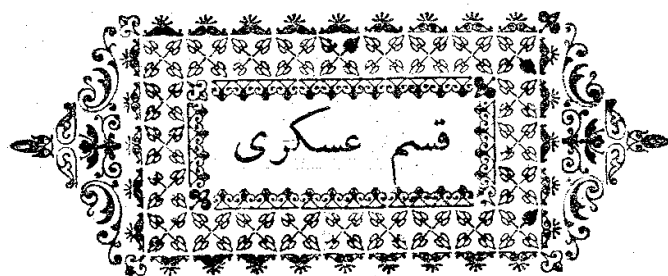 قسم عسكری